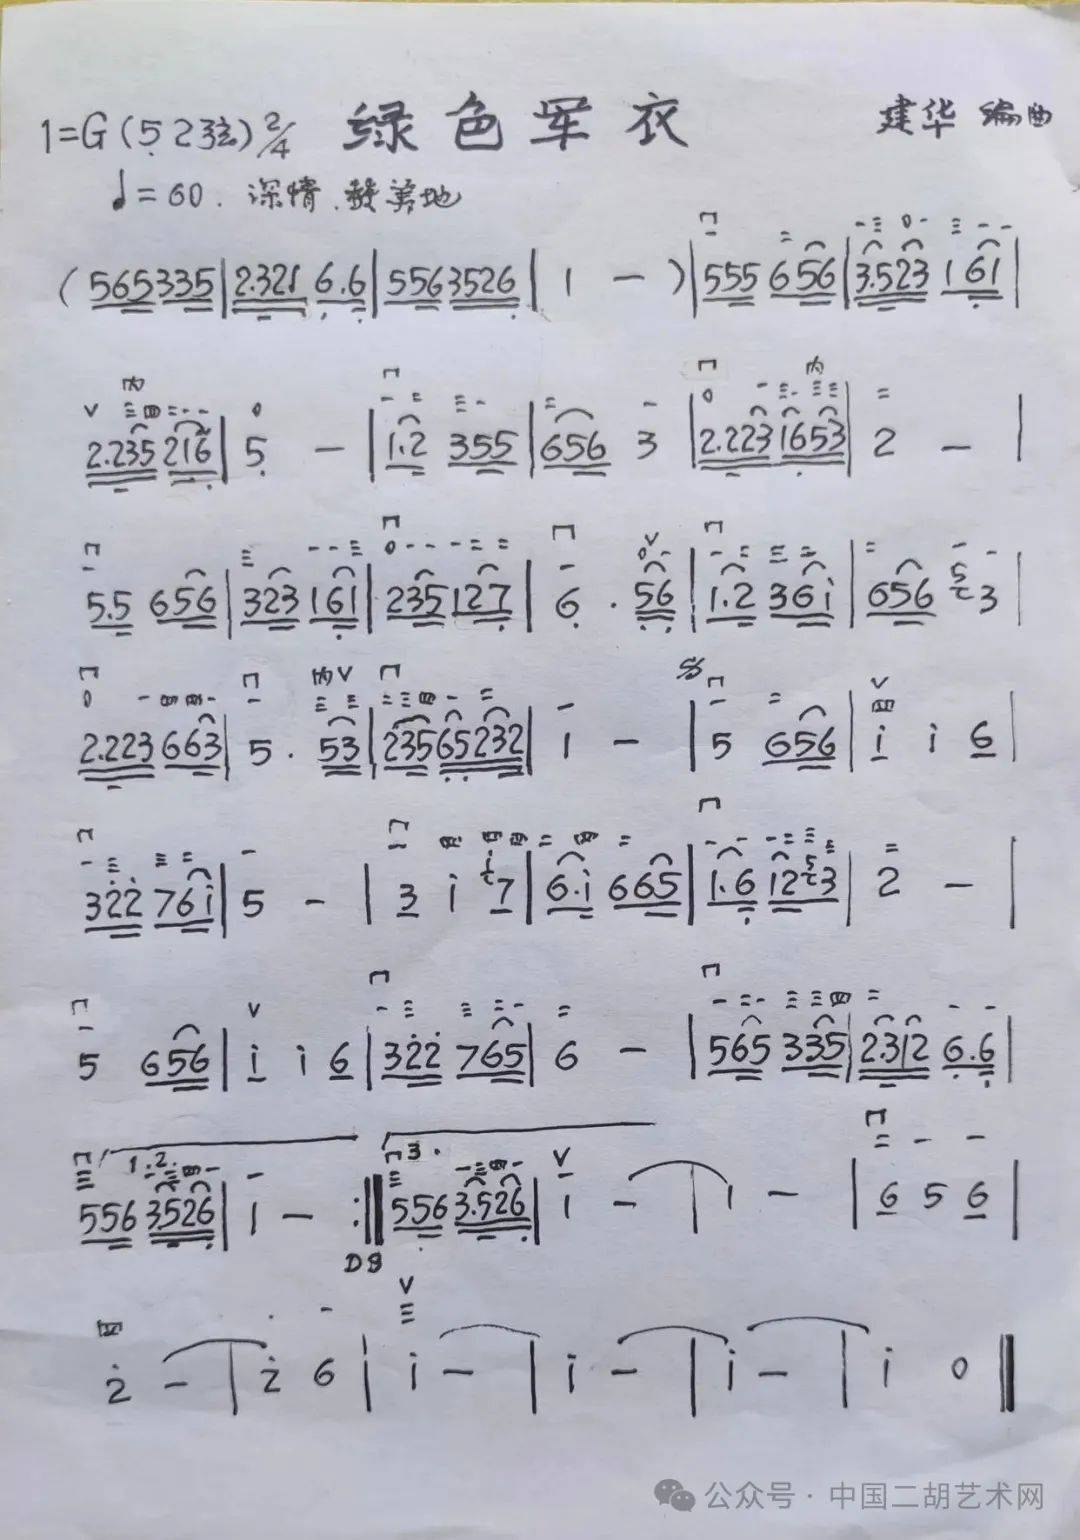 1=G(5 2弦)2/4 绿色军衣 建华 编曲
♩=60. 深情.赞美地
(565335|2.321 6.6|5563526|1 —)|555 656|3.523 161|
内 内
2.235 216|5 —|1.2 355|656 3|2.223 1653|2 —|
5.5 656|323 161|235 127|6 . 56|1.2 36i|656 5 3|
内
2.223 663|5 . 53|235 65232|1 —|5 656|i i 6|
322 76i|5 —|3 i i 7|6.i 665|1.6 12 5 3|2 —|
5 656|i i 6|322 765|6 —|565 335|2.312 6.6|
1.2. 3.
556 3.526|1 — :‖556 3.526|1 —|1 —|6 5 6|
D S
2 —|2 6|i —|i —|i —|i 0‖
公众号·中国二胡艺术网